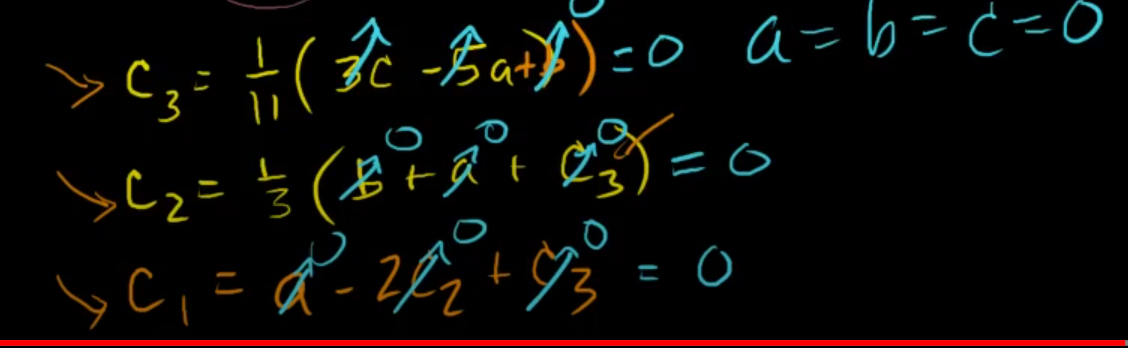 C₃ = 1/11 ( 3c - 5a + b ) = 0 a = b = c = 0
0
C₂ = 1/3 ( b + a + C₃ ) = 0
0 0 0
C₁ = a - 2C₂ + C₃ = 0
0 0 0